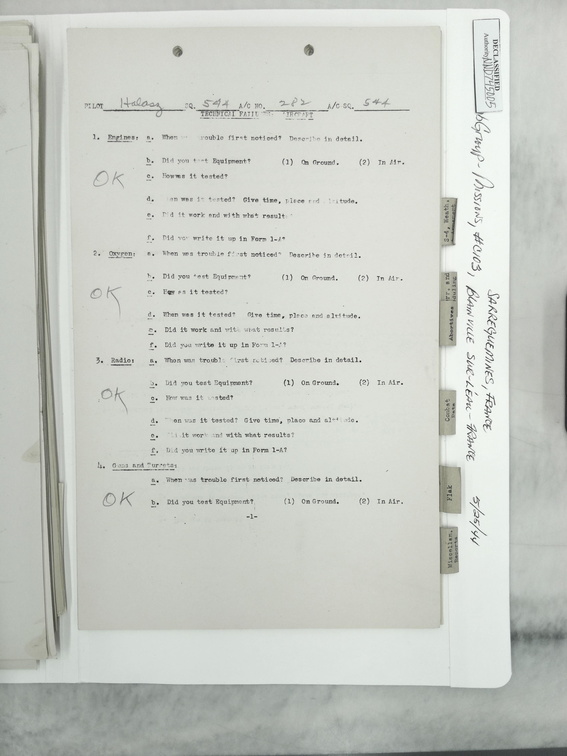 PILOT Halasz SQ. 544 A/C NO. 282 A/C SQ. 544
TECHNICAL FAILURE AIRCRAFT
1. Engines: a. When trouble first noticed? Describe in detail.
b. Did you test Equipment? (1) On Ground. (2) In Air.
OK
c. How was it tested?
d. When was it tested? Give time, place and altitude.
e. Did it work and with what results
f. Did you write it up in Form 1-A?
2. Oxygen: a. When was trouble first noticed? Describe in detail.
b. Did you test Equipment? (1) On Ground. (2) In Air.
OK
c. How was it tested?
d. When was it tested? Give time, place and altitude.
e. Did it work and with what results?
f. Did you write it up in Form 1-A?
3. Radio: a. When was trouble first noticed? Describe in detail.
b. Did you test Equipment? (1) On Ground. (2) In Air.
OK
c. How was it tested?
d. When was it tested? Give time, place and altitude.
e. Did it work and with what results?
f. Did you write it up in Form 1-A?
4. Guns and Turrets:
a. When was trouble first noticed? Describe in detail.
OK
b. Did you test Equipment? (1) On Ground. (2) In Air.
-1-
DECLASSIFIED
Authority NND745005
Group - Missions,
SARREGUEMINES, FRANCE
BLAINVILLE SUR-L'EAU - FRANCE
5/25/44
Abortives
Combat
Flak
Miscellan.
Reports